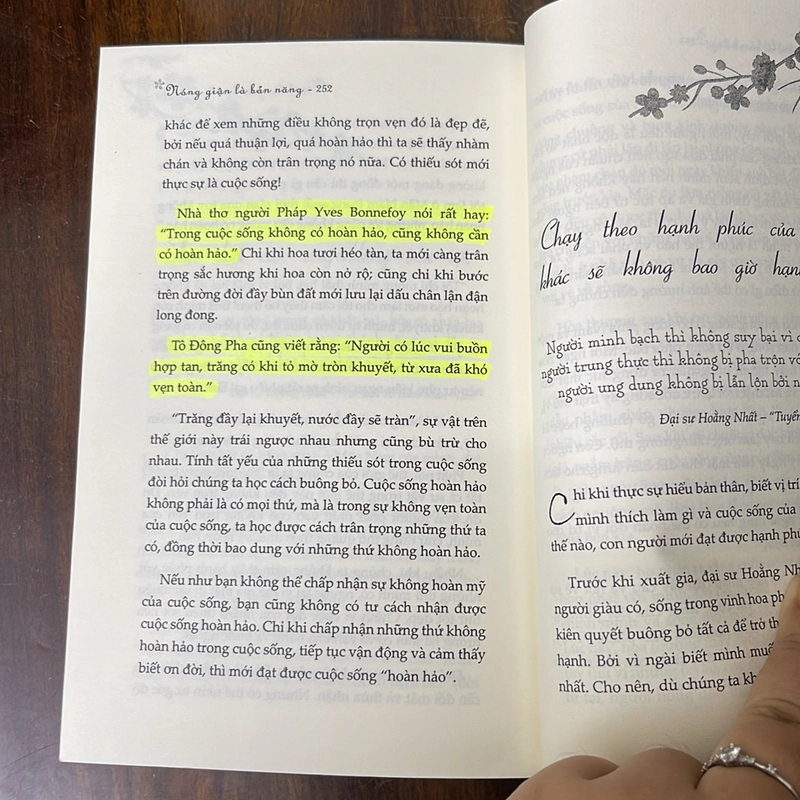 Nóng giận là bản năng - 252
khác để xem những điều không trọn vẹn đó là đẹp đẽ,
bởi nếu quá thuận lợi, quá hoàn hảo thì ta sẽ thấy nhàm
chán và không còn trân trọng nó nữa. Có thiếu sót mới
thực sự là cuộc sống!
Nhà thơ người Pháp Yves Bonnefoy nói rất hay:
“Trong cuộc sống không có hoàn hảo, cũng không cần
có hoàn hảo.” Chỉ khi hoa tươi héo tàn, ta mới càng trân
trọng sắc hương khi hoa còn nở rộ; cũng chỉ khi bước
trên đường đời đầy bùn đất mới lưu lại dấu chân lận đận
long đong.
Tô Đông Pha cũng viết rằng: “Người có lúc vui buồn
hợp tan, trăng có khi tỏ mờ tròn khuyết, từ xưa đã khó
vẹn toàn.”
“Trăng đầy lại khuyết, nước đầy sẽ tràn”, sự vật trên
thế giới này trái ngược nhau nhưng cũng bù trừ cho
nhau. Tính tất yếu của những thiếu sót trong cuộc sống
đòi hỏi chúng ta học cách buông bỏ. Cuộc sống hoàn hảo
không phải là có mọi thứ, mà là trong sự không vẹn toàn
của cuộc sống, ta học được cách trân trọng những thứ ta
có, đồng thời bao dung với những thứ không hoàn hảo.
Nếu như bạn không thể chấp nhận sự không hoàn mỹ
của cuộc sống, bạn cũng không có tư cách nhận được
cuộc sống hoàn hảo. Chỉ khi chấp nhận những thứ không
hoàn hảo trong cuộc sống, tiếp tục vận động và cảm thấy
biết ơn đời, thì mới đạt được cuộc sống “hoàn hảo”.
Chạy theo hạnh phúc của
khác sẽ không bao giờ hạn
Người minh bạch thì không suy bại vì c
người trung thực thì không bị pha trộn vớ
người ung dung không bị lẫn lộn bởi n
Đại sư Hoằng Nhất – “Tuyể
Chỉ khi thực sự hiểu bản thân, biết vị trí
mình thích làm gì và cuộc sống của
thế nào, con người mới đạt được hạnh phú
Trước khi xuất gia, đại sư Hoằng Nh
người giàu có, sống trong vinh hoa ph
kiên quyết buông bỏ tất cả để trở th
hạnh. Bởi vì ngài biết mình muố
nhất. Cho nên, dù chúng ta kh